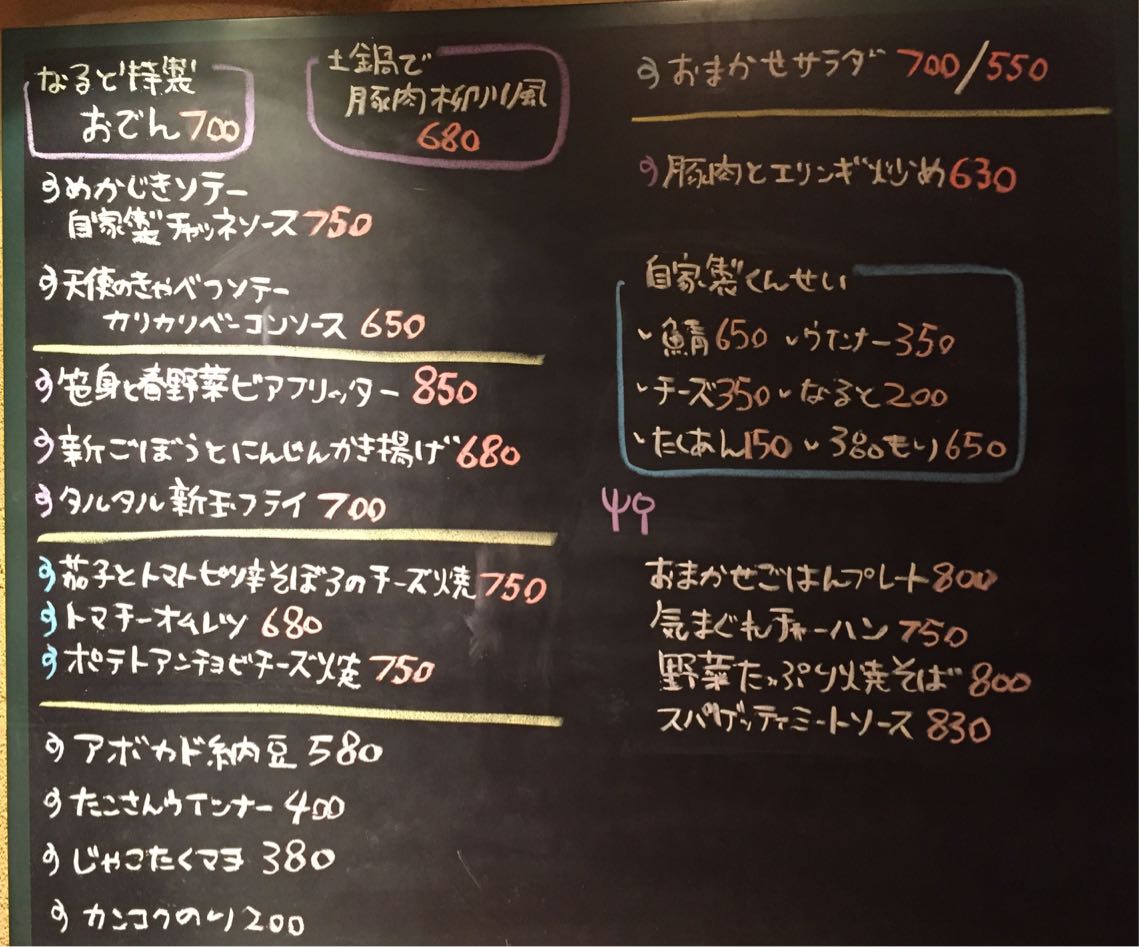 なると特製
おでん700
土鍋で
豚肉柳川風
680
めかじきソテー
自家製チャツネソース750
天使のきゃべつソテー
カリカリベーコンソース 650
笹身と春野菜ビアフリッター 850
新ごぼうとにんじんかき揚げ680
タルタル新玉フライ 700
茄子とトマトピリ辛そぼろのチーズ焼750
トマチーオムレツ 680
ポテトアンチョビチーズ焼 750
アボカド納豆 580
たこさんウインナー 400
じゃこたくマヨ 380
カンコクのり200
おまかせサラダ 700/550
豚肉とエリンギ炒め630
自家製くんせい
鯖650 ウインナー350
チーズ350 なると200
たくあん150 3種もり650
おまかせごはんプレート800
気まぐれチャーハン 750
野菜たっぷり焼そば 800
スパゲッティミートソース 830